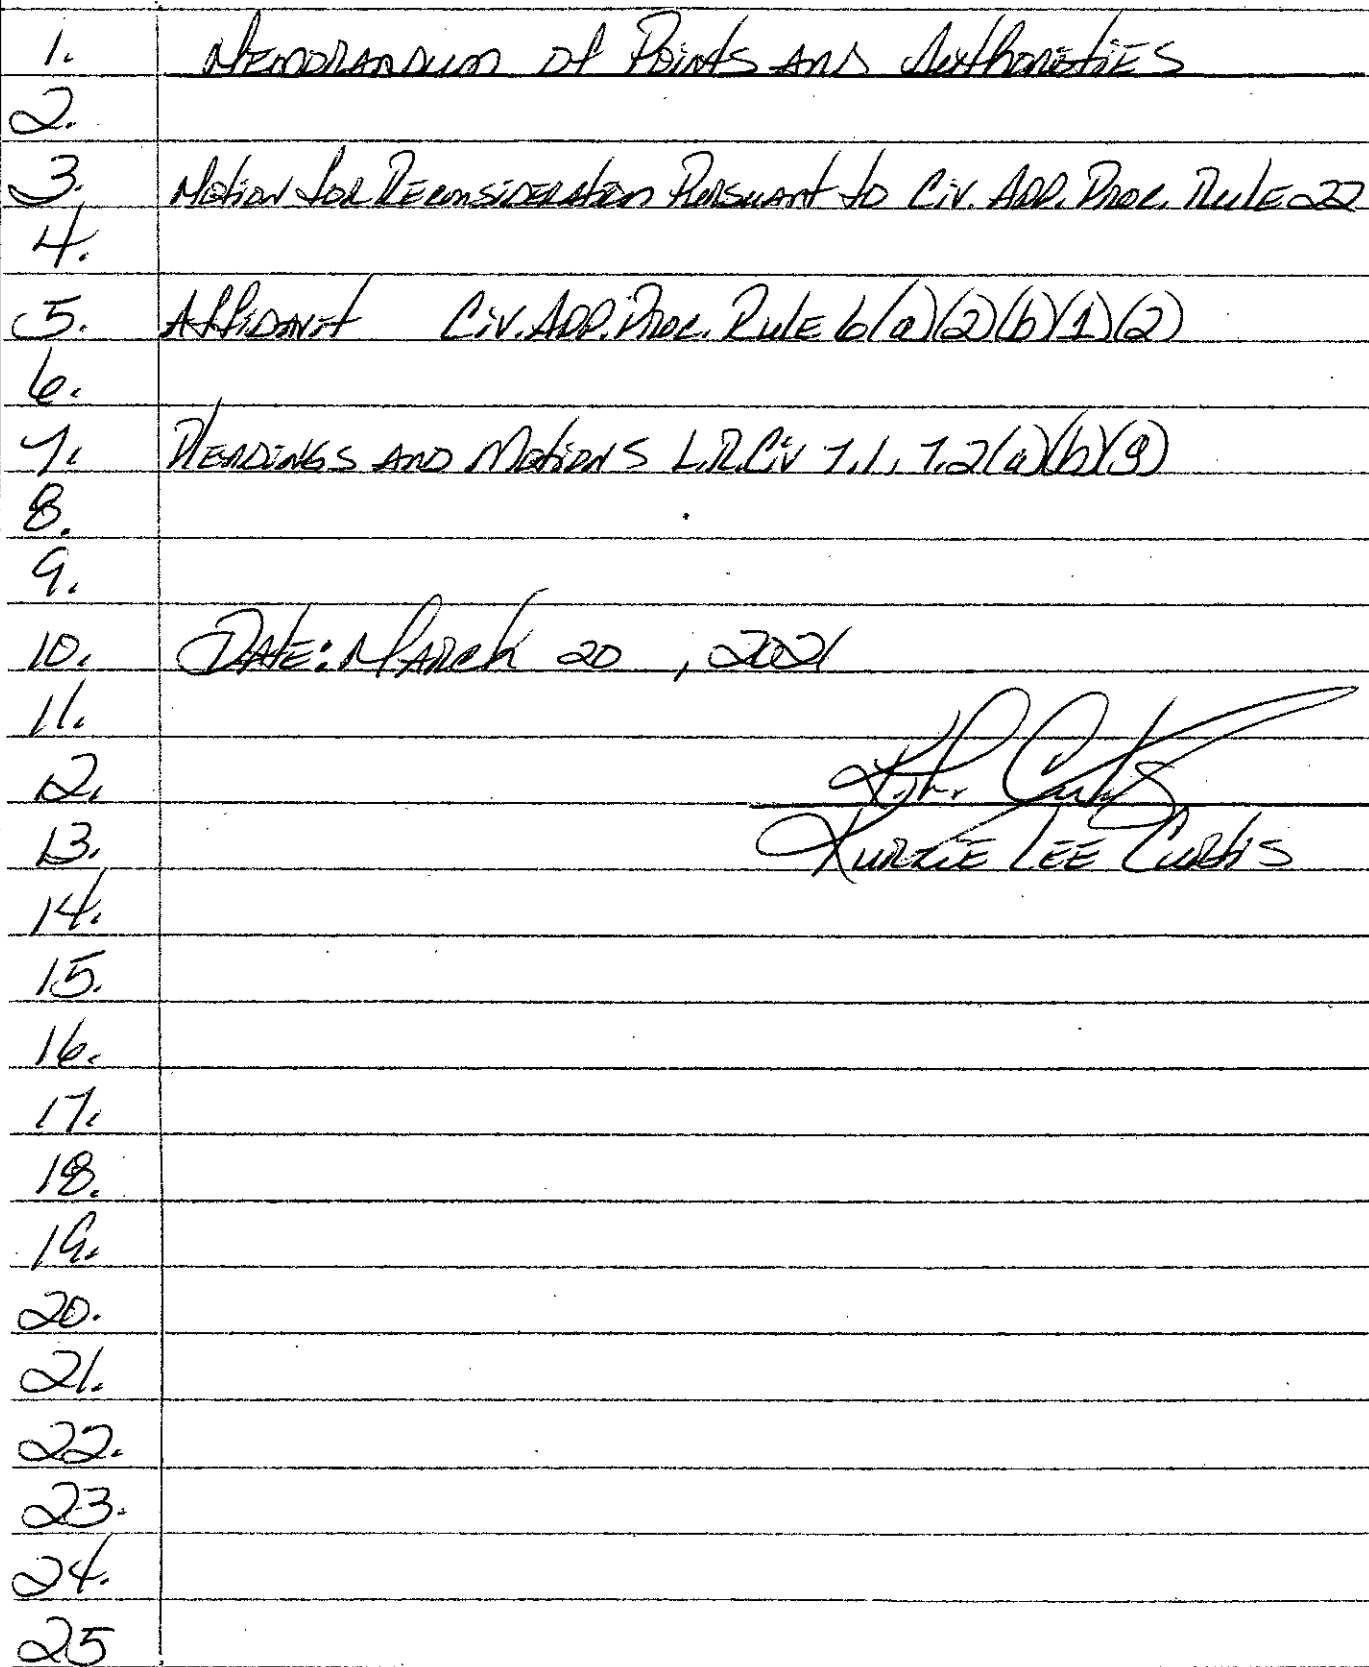 1. Memorandum of Points and Authoreties
2.
3. Motion for Reconsideration Pursuant to Civ. App. Proc. Rule 22
4.
5. Affidavit Civ. App. Proc. Rule 6(a)(2)(b)(1)(2)
6.
7. Pleadings and Motions L.R.Civ 7.1, 7.2(a)(b)(g)
8.
9.
10. Date: March 20, 2021
11.
12. K.L. Curtis
13. Kurtie Lee Curtis
14.
15.
16.
17.
18.
19.
20.
21.
22.
23.
24.
25